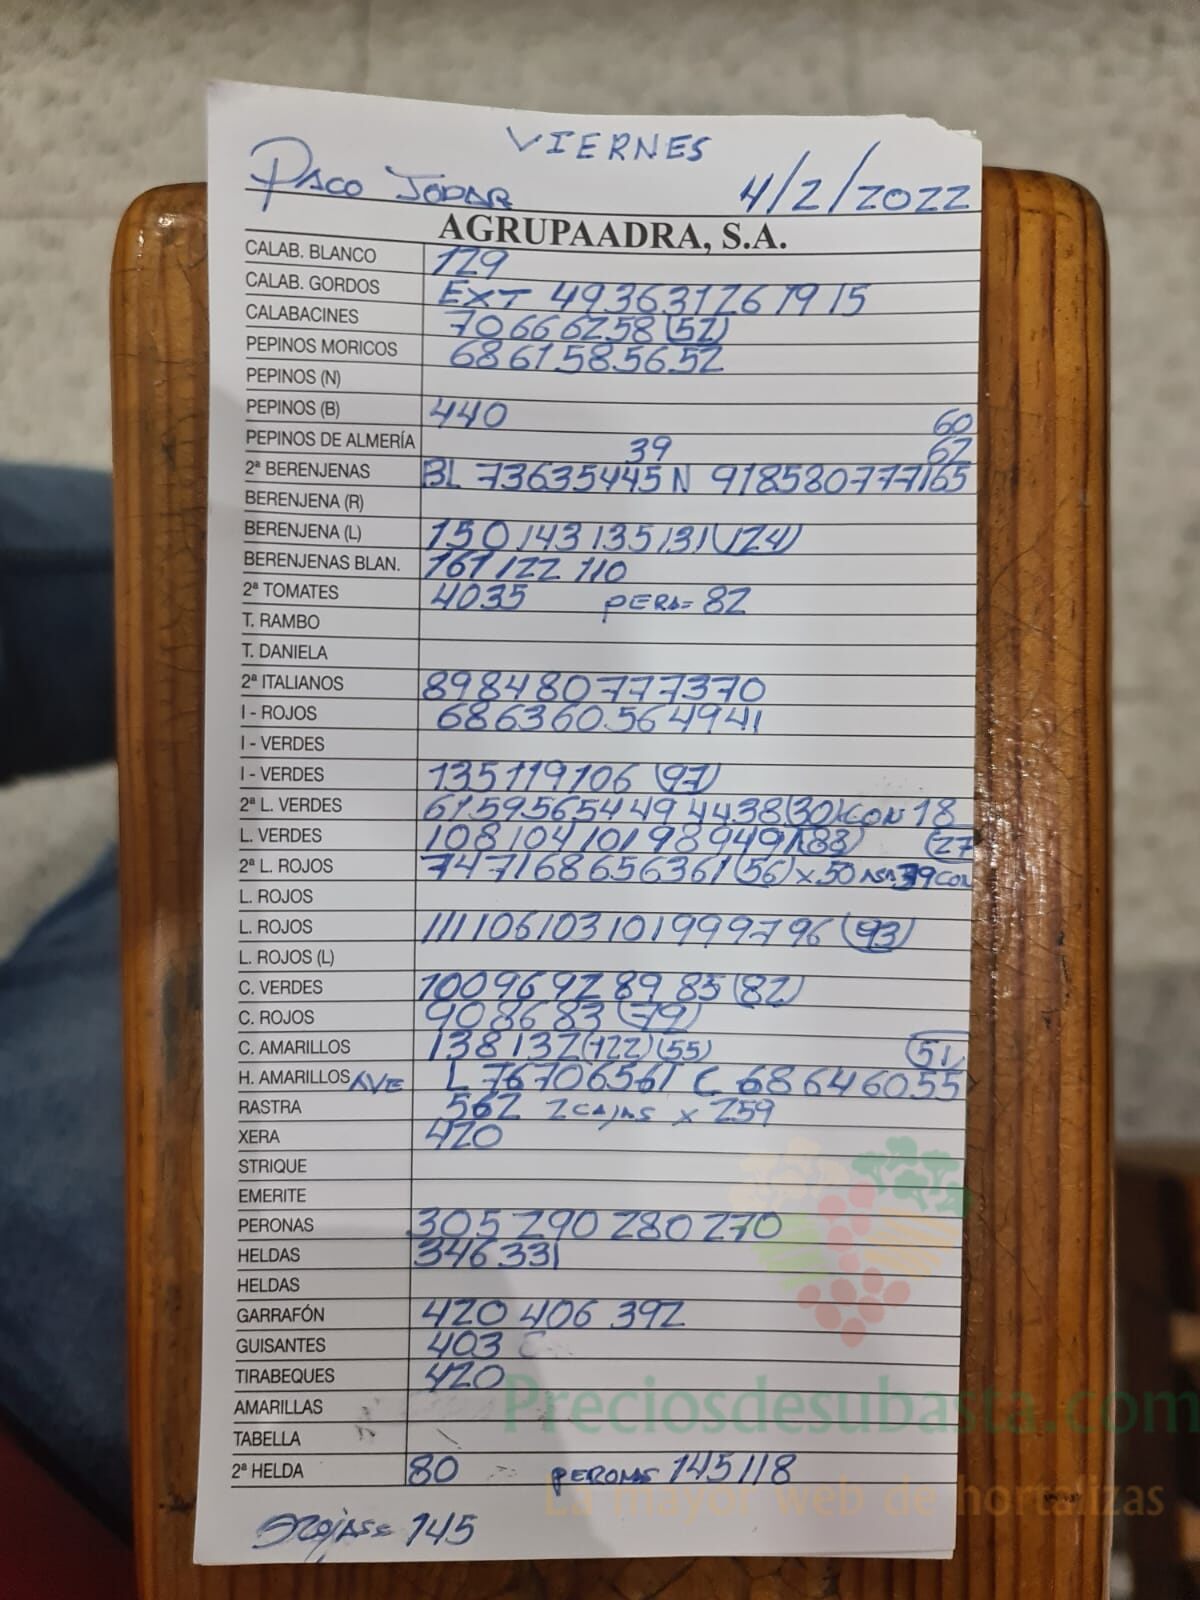 VIERNES
PACO JODAR 4/2/2022
AGRUPAADRA, S.A.
CALAB. BLANCO 129
CALAB. GORDOS EXT 49 36 31 26 19 15
CALABACINES 70 66 62 58 (52)
PEPINOS MORICOS 68 61 58 56 52
PEPINOS (N)
PEPINOS (B) 440 60
PEPINOS DE ALMERÍA 39 62
2ª BERENJENAS BL 73 63 54 45 N 91 85 80 77 71 65
BERENJENA (R)
BERENJENA (L) 150 143 135 131 (124)
BERENJENAS BLAN. 161 122 110
2ª TOMATES 40 35 PERA= 82
T. RAMBO
T. DANIELA
2ª ITALIANOS 89 84 80 77 73 70
I - ROJOS 68 63 60 56 49 41
I - VERDES
I - VERDES 135 119 106 (97)
2ª L. VERDES 61 59 56 54 49 44 38 (30) CON 18
L. VERDES 108 104 101 98 94 91 (88) (27
2ª L. ROJOS 74 71 68 65 63 61 (56) x 50 ASA 39 CON
L. ROJOS
L. ROJOS 111 106 103 101 99 97 96 (93)
L. ROJOS (L)
C. VERDES 100 96 92 89 85 (82)
C. ROJOS 90 86 83 (79)
C. AMARILLOS 138 132 (122) (55) (51)
H. AMARILLOS AVE L 76 70 65 61 C 68 64 60 55
RASTRA 562 2 CAJAS x 259
XERA 420
STRIQUE
EMERITE
PERONAS 305 290 280 270
HELDAS 346 331
HELDAS
GARRAFÓN 420 406 392
GUISANTES 403
TIRABEQUES 420
AMARILLAS
TABELLA
2ª HELDA 80 PERONAS 145 118
145
Preciosdesubasta.com
La mayor web de hortalizas